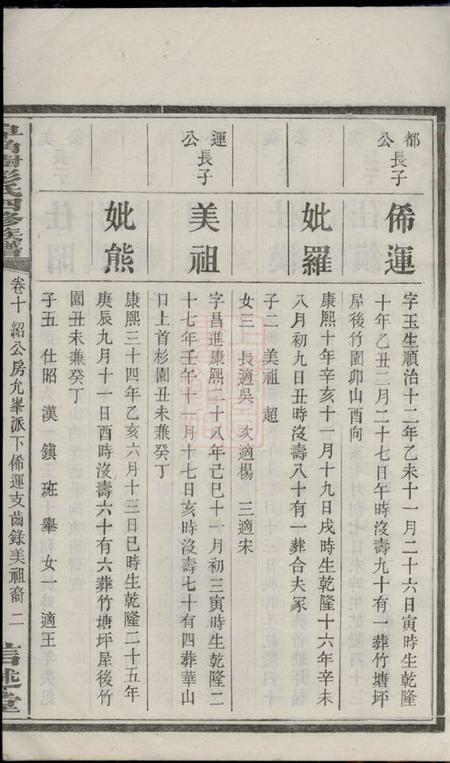 都公長子
俙運
字玉生順治十二年乙未十一月二十六日寅時生乾隆
十年乙丑二月二十七日午時沒壽九十有一葬竹塘坪
屋後竹園卯山酉向
妣羅
康熙十年辛亥十一月十九日戌時生乾隆十六年辛未
八月初九日丑時沒壽八十有一葬合夫冢
子二 美祖 超
女三 長適吳 次適楊 三適宋
運公長子
美祖
字昌進康熙二十八年己巳十一月初三寅時生乾隆二
十七年壬午十一月十七日亥時沒壽七十有四葬華山
口上首杉園丑未兼癸丁
妣熊
康熙三十四年乙亥六月十三日巳時生乾隆二十五年
庚辰九月十一日酉時沒壽六十有六葬竹塘坪屋後竹
園丑未兼癸丁
子五 仕昭 漢 鎮 班 舉 女一適王
彭氏四修族譜
卷十 紹公房允峯派下俙運支齒錄美祖裔 二
信述堂